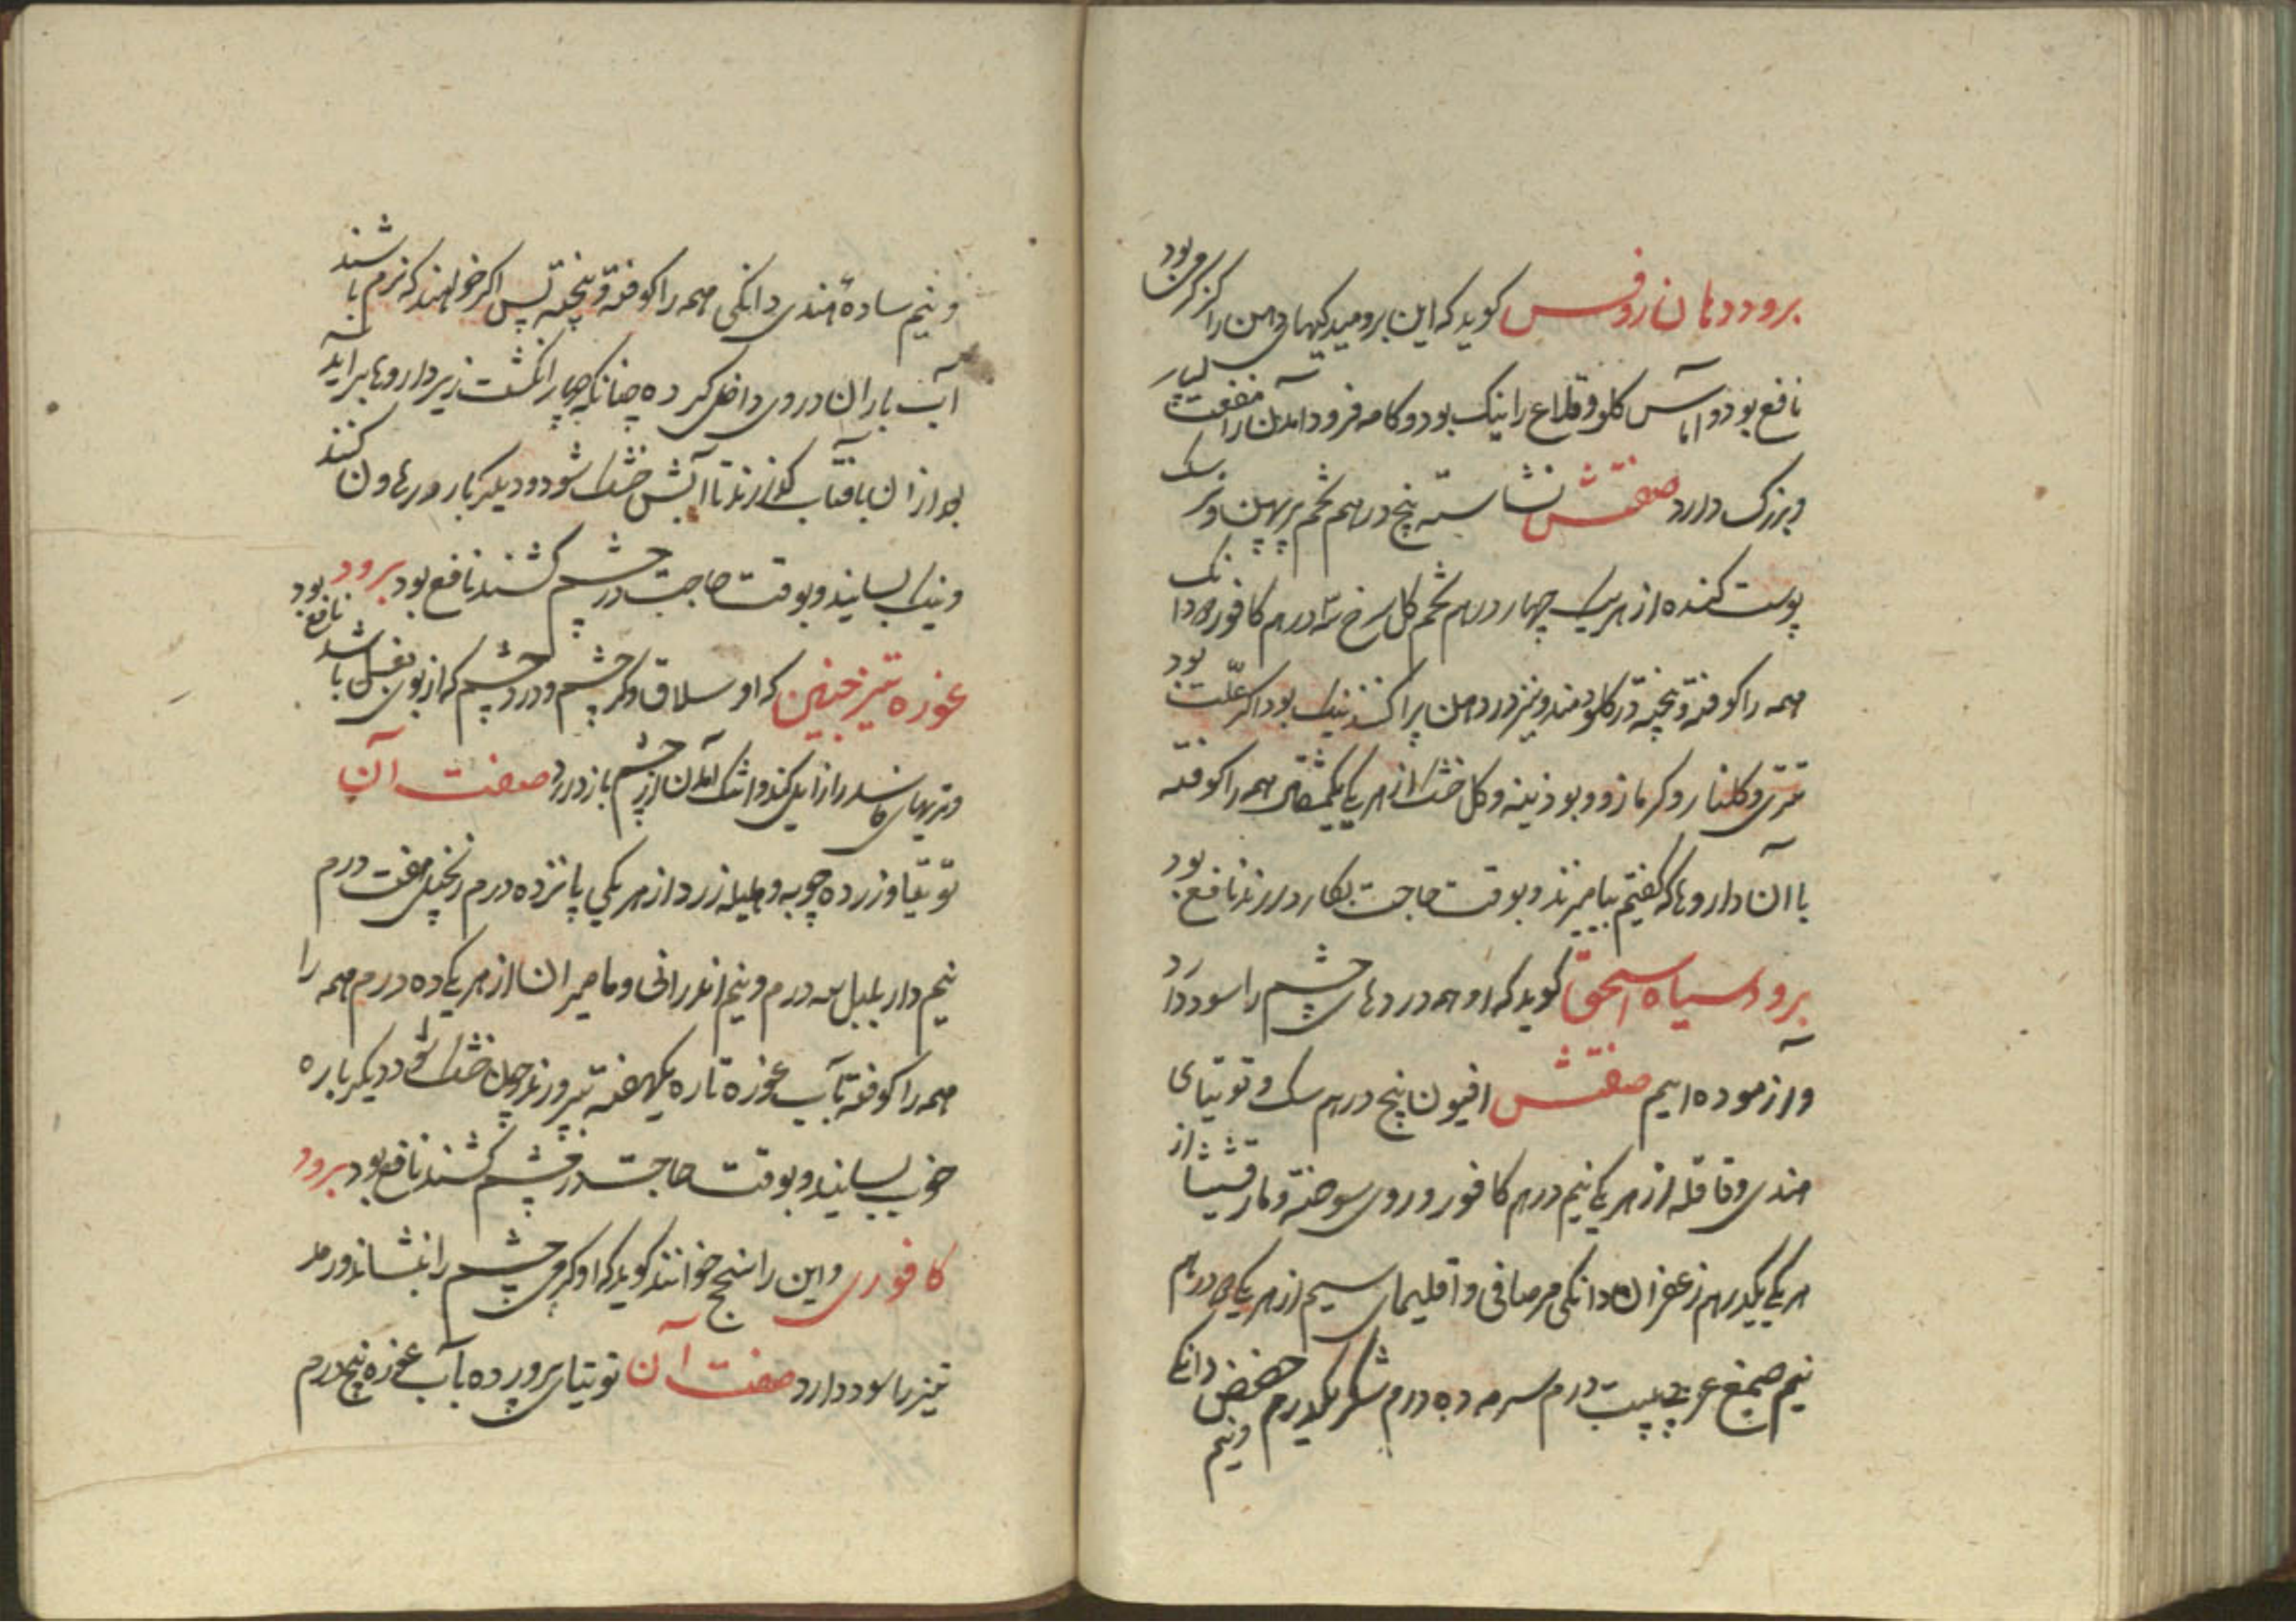 برود دهان روفس کوید که این برومیدکیهای دهن را کز کرم بود
نافع بود و اماس کلو و قلاع را نیک بود و کامه فرود امدن را منفعت
بزرک دارد صفتش نشاسته پنج درهم تخم پرپهن و
پوست کنده از هریک چهار درهم تخم کل سرخ سه درهم کافور دانک
همه را کوفته و پخته در کلو دمند و نیز در دهن پراکنند نیک بود اکر علت بود
تتری و کلنار و کرمازو و بوذینه و کل خشک از هریکی یکمثقال همه را کوفته
با آن داروها که کفتیم بیامیزند و بوقت حاجت بکار دارند نافع بود
برود سیاه اسحق کوید که او همه دردهای چشم را سود دارد
و آزموده ایم صفتش افیون پنج درهم سک و توتیای
هندی و قاقله از هریکی نیم درهم کافور و روی سوخته و مارقشیشا از
هریکی یکدرهم زعفران دانکی مر صافی و اقلیمای سیم از هریکی درهم
نیم صمغ عربی بیست درم سرمه ده درم شکر یکدرم حضض دانکی ونیم
ونیم ساده هندی دانکی همه را کوفته و پخته پس اکر خواهند که نرم باشند
آب باران در وی داخل کرده چنانکه چهار انکشت زیر داروها برآید
بعد از ان بافتاب کذارند تا آبش خشک شود و دیکر بار در هاون کنند
ونیک بسایند و بوقت حاجت در چشم کشند نافع بود برود
غوره تیز خنین که او سلاق و کر چشم و درد چشم که از بوی بغل باشد نافع بود
و تریهای فاسد را زایل کند و اشک آمدن از چشم باز دارد صفت آن
توتیا و زرده چوبه و هلیله زرد از هریکی پانزده درم زنجبیل هفت درم
نیم دار بلبل سه درم و نیم اندرانی و مامیران از هریکی ده درم همه را
همه را کوفته بآب غوره تازه یکهفته بپرورند چون خشک شود دیکرباره
خوب بسایند و بوقت حاجت در چشم کشند نافع بود برود
کافوری و این را سنج خوانند کوید که او کرمی چشم را بنشاند و رمد
نیز را سود دارد صفت آن توتیای پرورده بآب غوره پنج درم